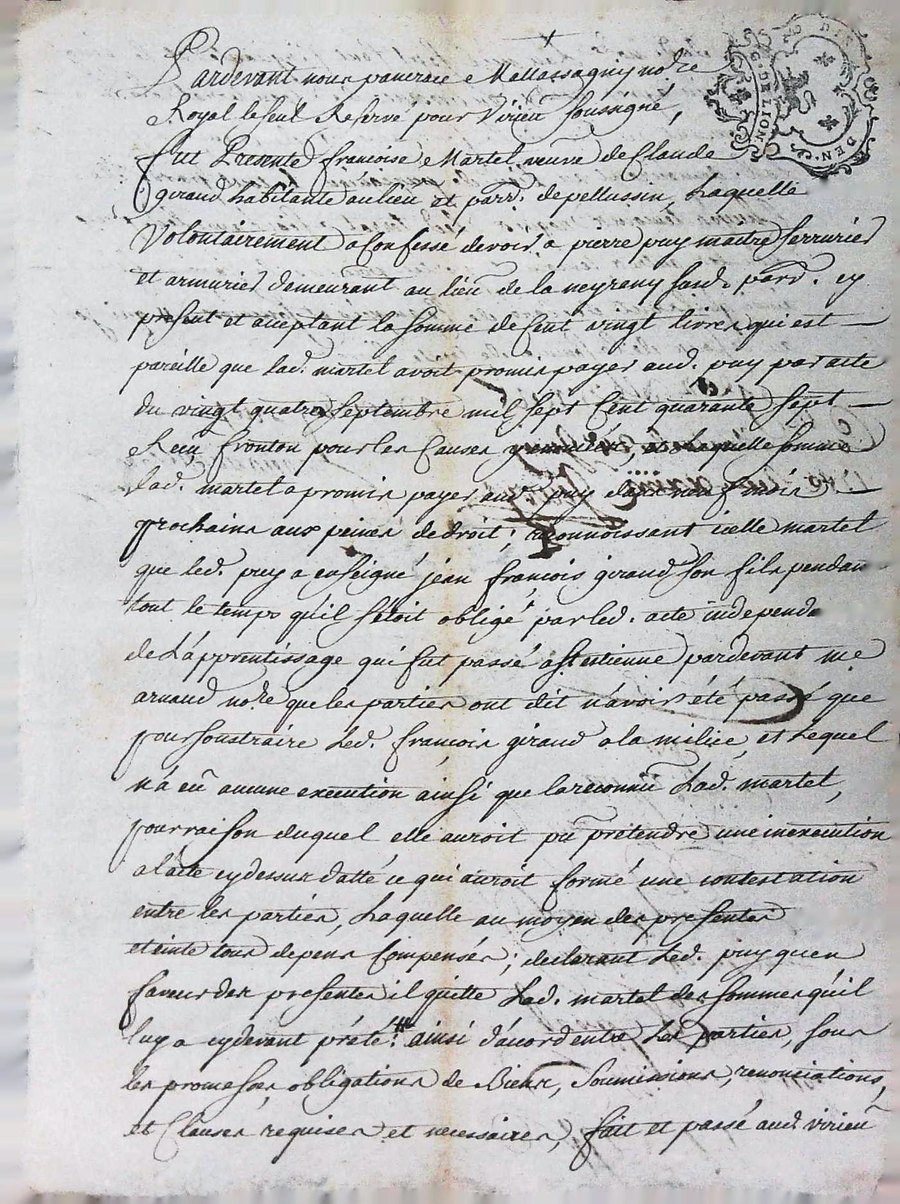 G. DE LION
DEN.
Pardevant nous pancrace Mallassagny no.re
Royal le seul Reservé pour Virieu soussigné,
fut Presente francoise Martel, veuve de Claude
giraud habitante au lieu et parr. de pellussin, Laquelle
Volontairement a confessé devoir a pierre puy maitre serrurier
et armurier demeurant au lieu de la neyrany sasd. parr. cy
present et aceptant la somme de Cent vingt livres qui est
pareille que lad. martel avoit promis payer aud. puy par acte
du vingt quatre septembre mil sept Cent quarante sept
Receu fronton pour les Causes y enoncées, laquelle somme
lad. martel a promis payer aud. puy dans neuf mois
prochains aux peines de droit; reconnoissant icelle martel
que led. puy a enseigné jean françois giraud son fils pendan
tout le temps qu'il s'etoit obligé par led. acte independ
de L'apprentissage qui fut passé a st estienne pardevant me
arnaud no.re que les parties ont dit n'avoir été passé que
pour soustraire Led. françois giraud a la milice, et Lequel
n'a eû aucune execution ainsi que la reconnu Lad. martel,
pour raison duquel elle auroit pû prétendre une inexecution
a l'acte cy dessus datté ce qui auroit formé une contestation
entre les parties, Laquelle au moyen des presentes
eteinte tous depens Compensés; declarant Led. puy qu'en
faveur des presentes il quitte Lad. martel des sommes qu'il
luy a cy devant prété. ainsi d'acord entre Les parties, sous
les promesses, obligations de Biens, Soumissions, renonciations,
et Clauses requises et necessaires, fait et passé aud. virieu